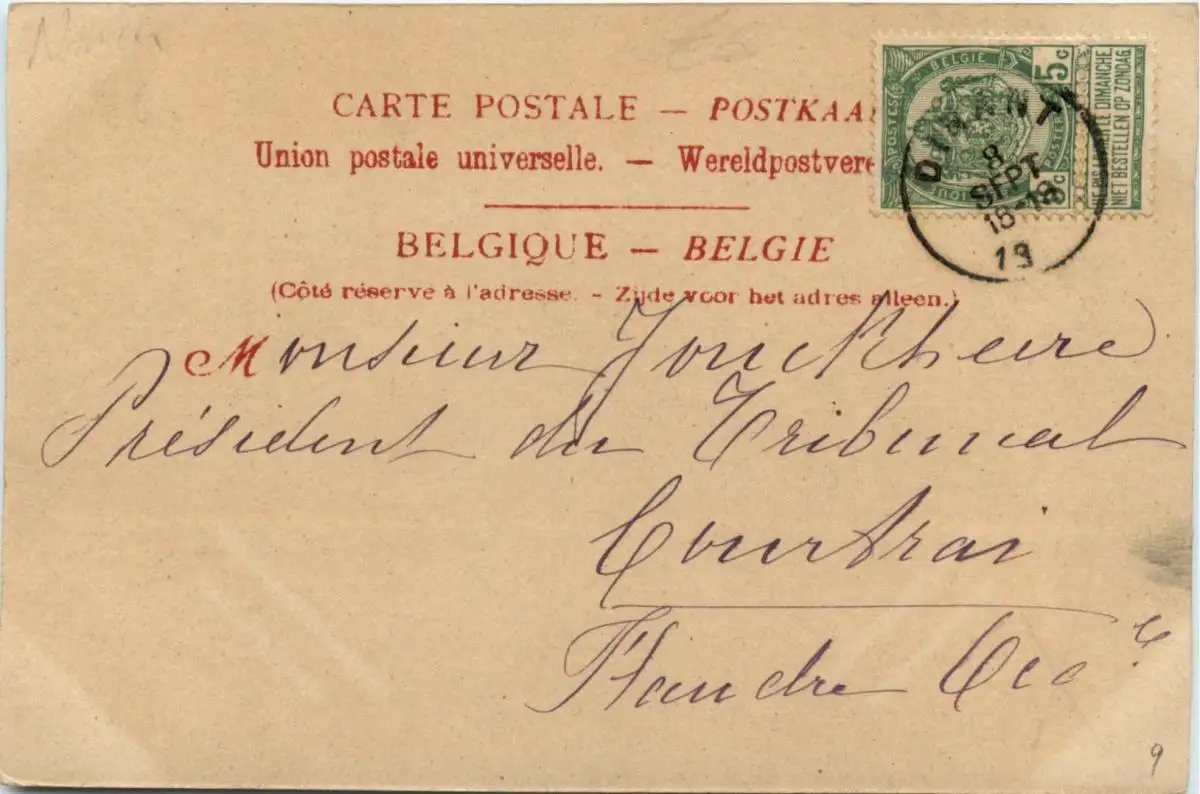 CARTE POSTALE — POSTKAA
Union postale universelle. — Wereldpostvere
BELGIQUE — BELGIE
(Côté réservé à l'adresse. - Zijde voor het adres alleen.)
Monsieur Jonckheere
Président du Tribunal
Courtrai
Flandre Occ
9
POSTES BELGIE
5c
NIET BESTELLEN OP ZONDAG
DIMANCHE
DINANT
8
SEPT
18-19
19